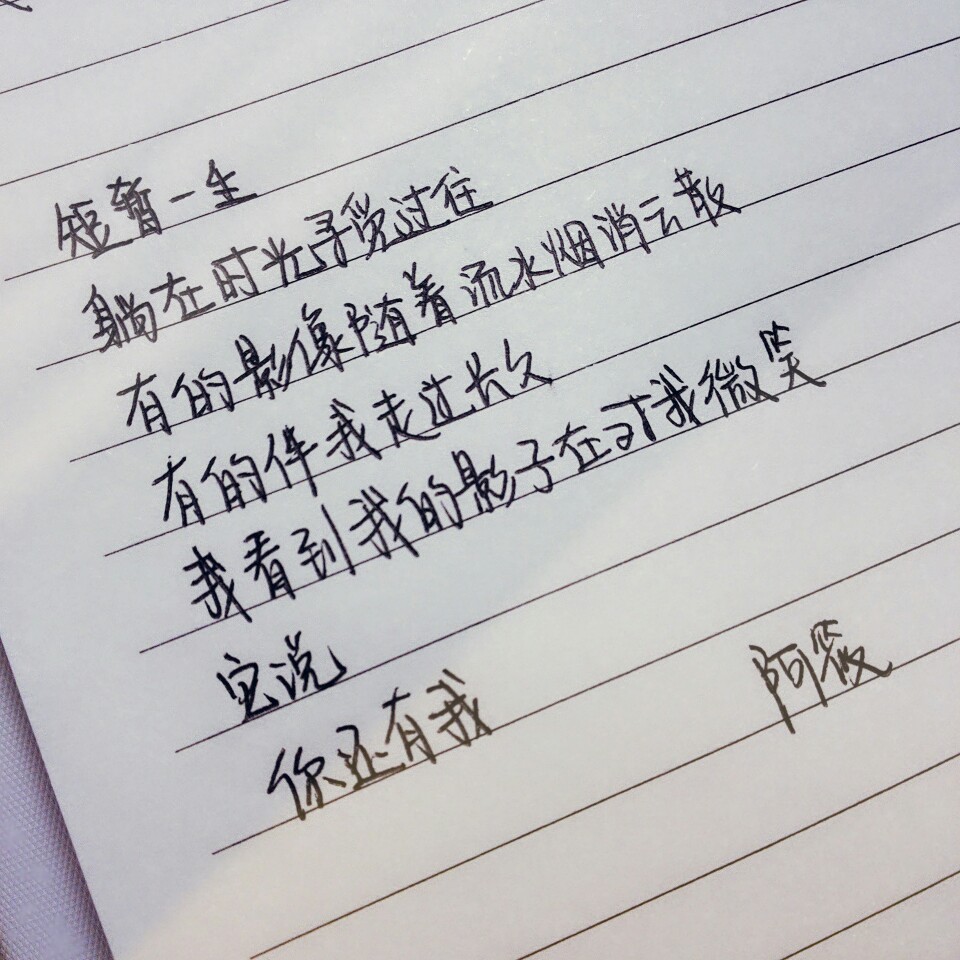 短暂一生
躺在时光寻觅过往
有的影像随着流水烟消云散
有的伴我走过长久
我看到我的影子在对我微笑
它说
你还有我
阿薇